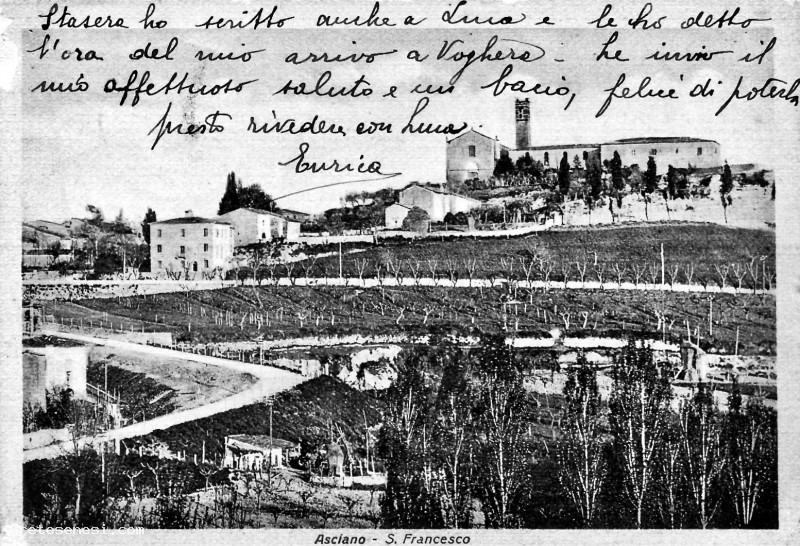 Stasera ho scritto anche a Lina e le ho detto
l'ora del mio arrivo a Voghera - Le invio il
mio affettuoso saluto e un bacio, felice di poterla
presto rivedere con Lina
Enrica
Asciano - S. Francesco